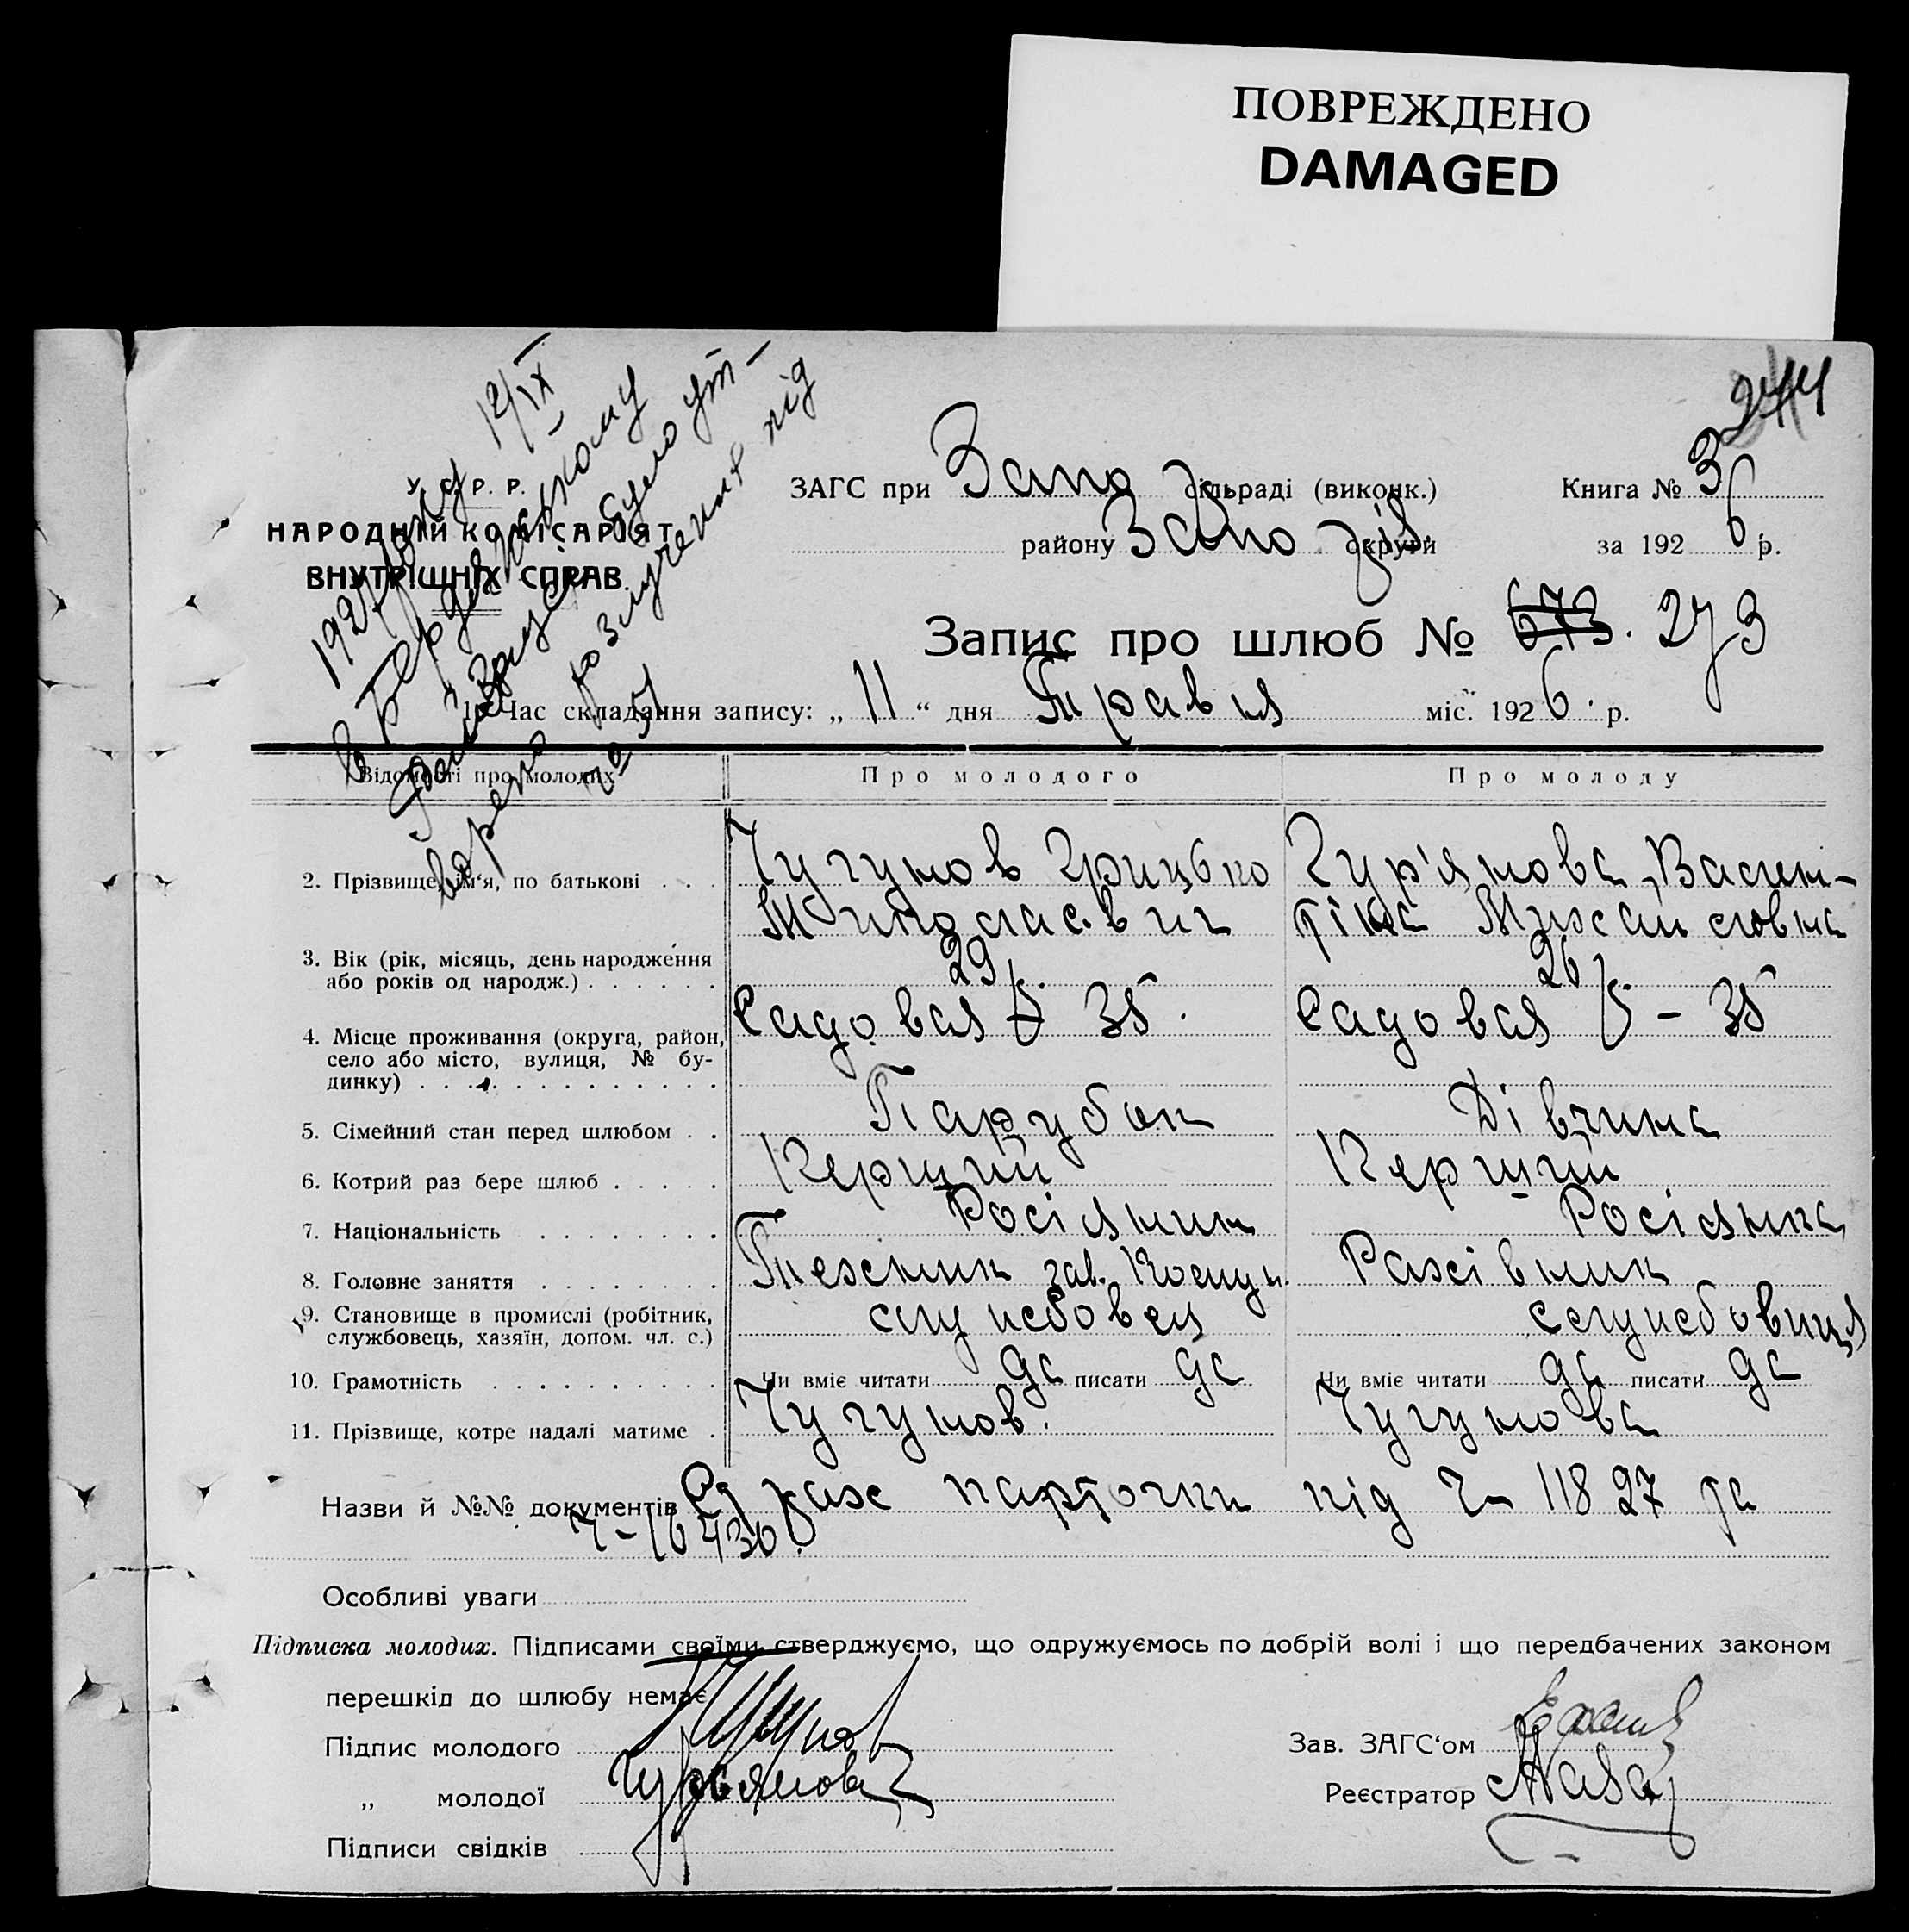 ПОВРЕЖДЕНО
DAMAGED
244
У. С. Р. Р.
НАРОДНІЙ КОМІСАРІЯТ
ВНУТРІШНІХ СПРАВ
1927 року 12/IX
в Бердянському
Райзагсі було ут-
ворено розлучення під
№ 51
ЗАГС при Запо сільраді (виконк.) Книга № 3
району Запоріз. округи за 1926 р.
Запис про шлюб № 673. 273
1. Час складання запису: „ 11 “ дня Травня міс. 1926. р.
Відомості про молодих Про молодого Про молоду
2. Прізвище, ім'я, по батькові . . . Чугунов Грицько Гур'янова Вален-
Миколаєвич тіна Михайловна
3. Вік (рік, місяць, день народження 29 26
або років од народж.) . . . . . .
4. Місце проживання (округа, район, Садовая 35. Садовая – 35
село або місто, вулиця, № бу-
динку) . . . . . . . . . . . . .
5. Сімейний стан перед шлюбом . . Парубок Дівчина
6. Котрий раз бере шлюб . . . . . Перший Перший
7. Національність . . . . . . . . Росіянин Росіянка
8. Головне заняття . . . . . . . . Техник зав. Комун. Рахівник
9. Становище в промислі (робітник, службовец службовиця
службовець, хазяїн, допом. чл. с.)
10. Грамотність . . . . . . . . . . Чи вміє читати да писати да Чи вміє читати да писати да
11. Прізвище, котре надалі матиме . Чугунов. Чугунова
Назви й №№ документів карточки під ч– 11827 та
ч–16430.
Особливі уваги
Підписка молодих. Підписами своїми стверджуємо, що одружуємось по добрій волі і що передбачених законом
перешкід до шлюбу немає
Підпис молодого Чугунов Зав. ЗАГС‘ом
„ молодої Гурьянова Реєстратор
Підписи свідків